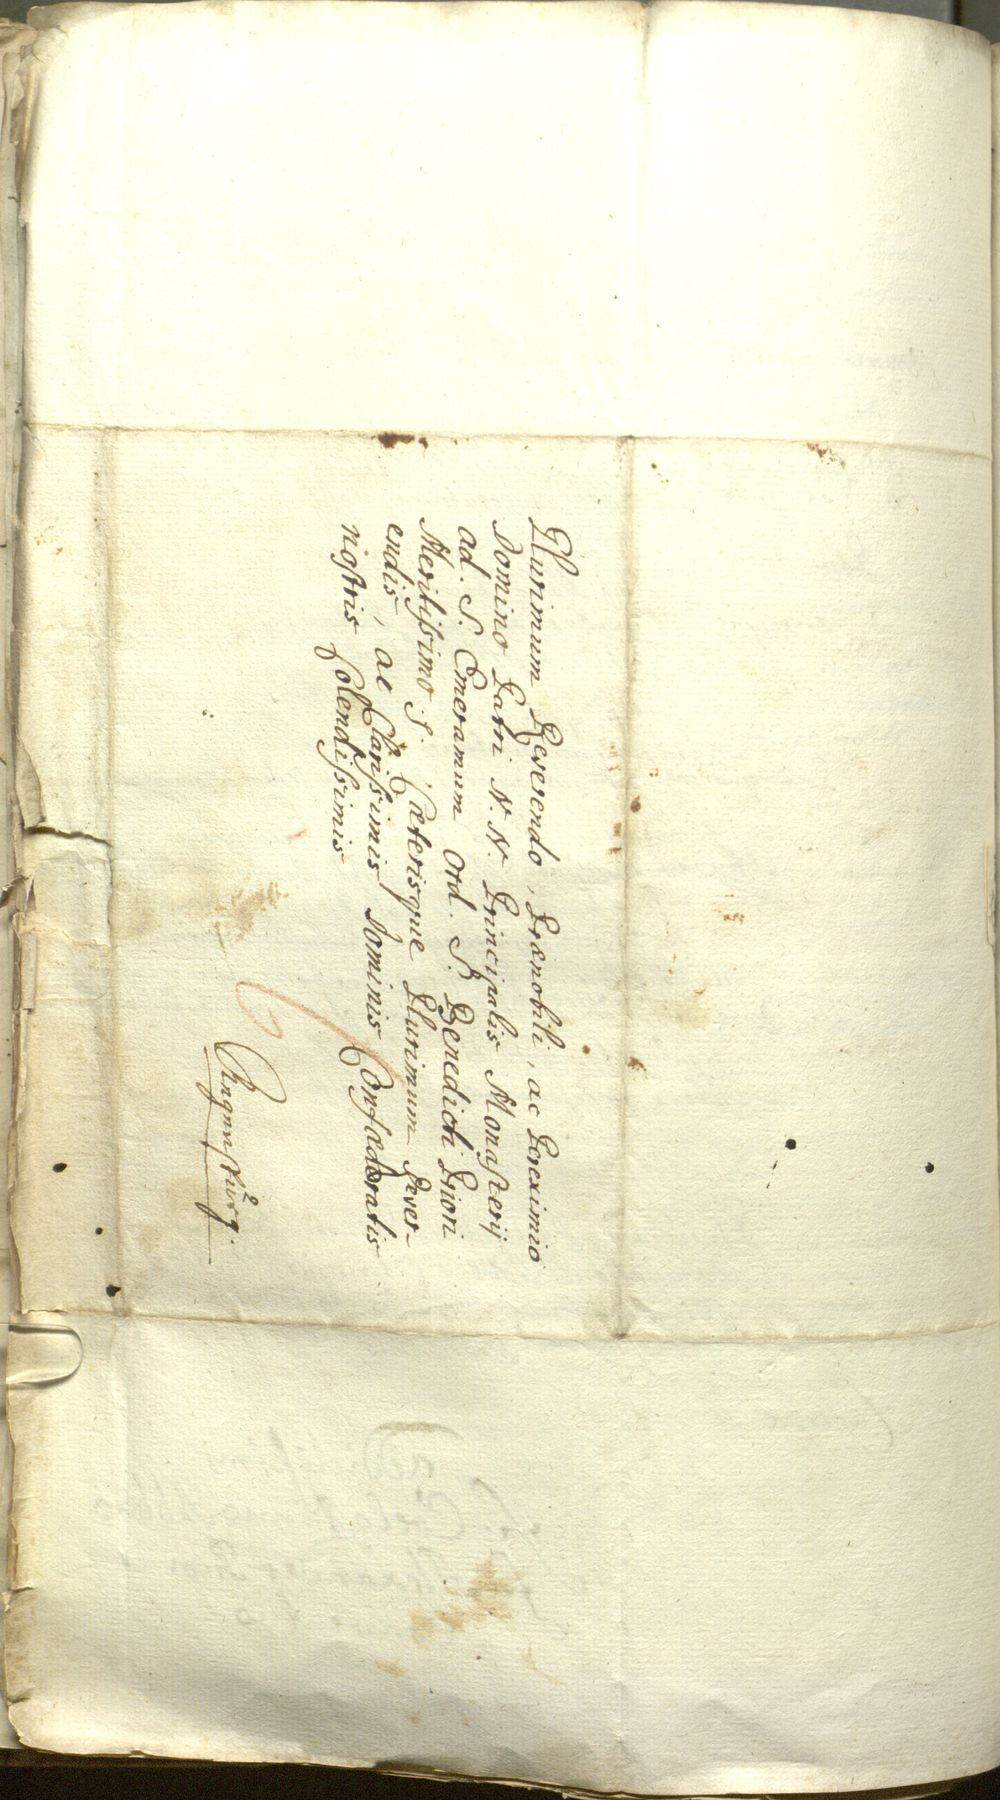 Plurimum Reverendo, Prænobili, ac Pereximio
Domino Patri N. N. Principalis Monasterij
ad. S. Emeramum Ord. S. Benedicti Priori
Meritissimo &. Cæterisque Plurimum Rever-
endis, ac Clarissimis Dominis Confœderatis
nostris Colendissimis
Regenspurg.